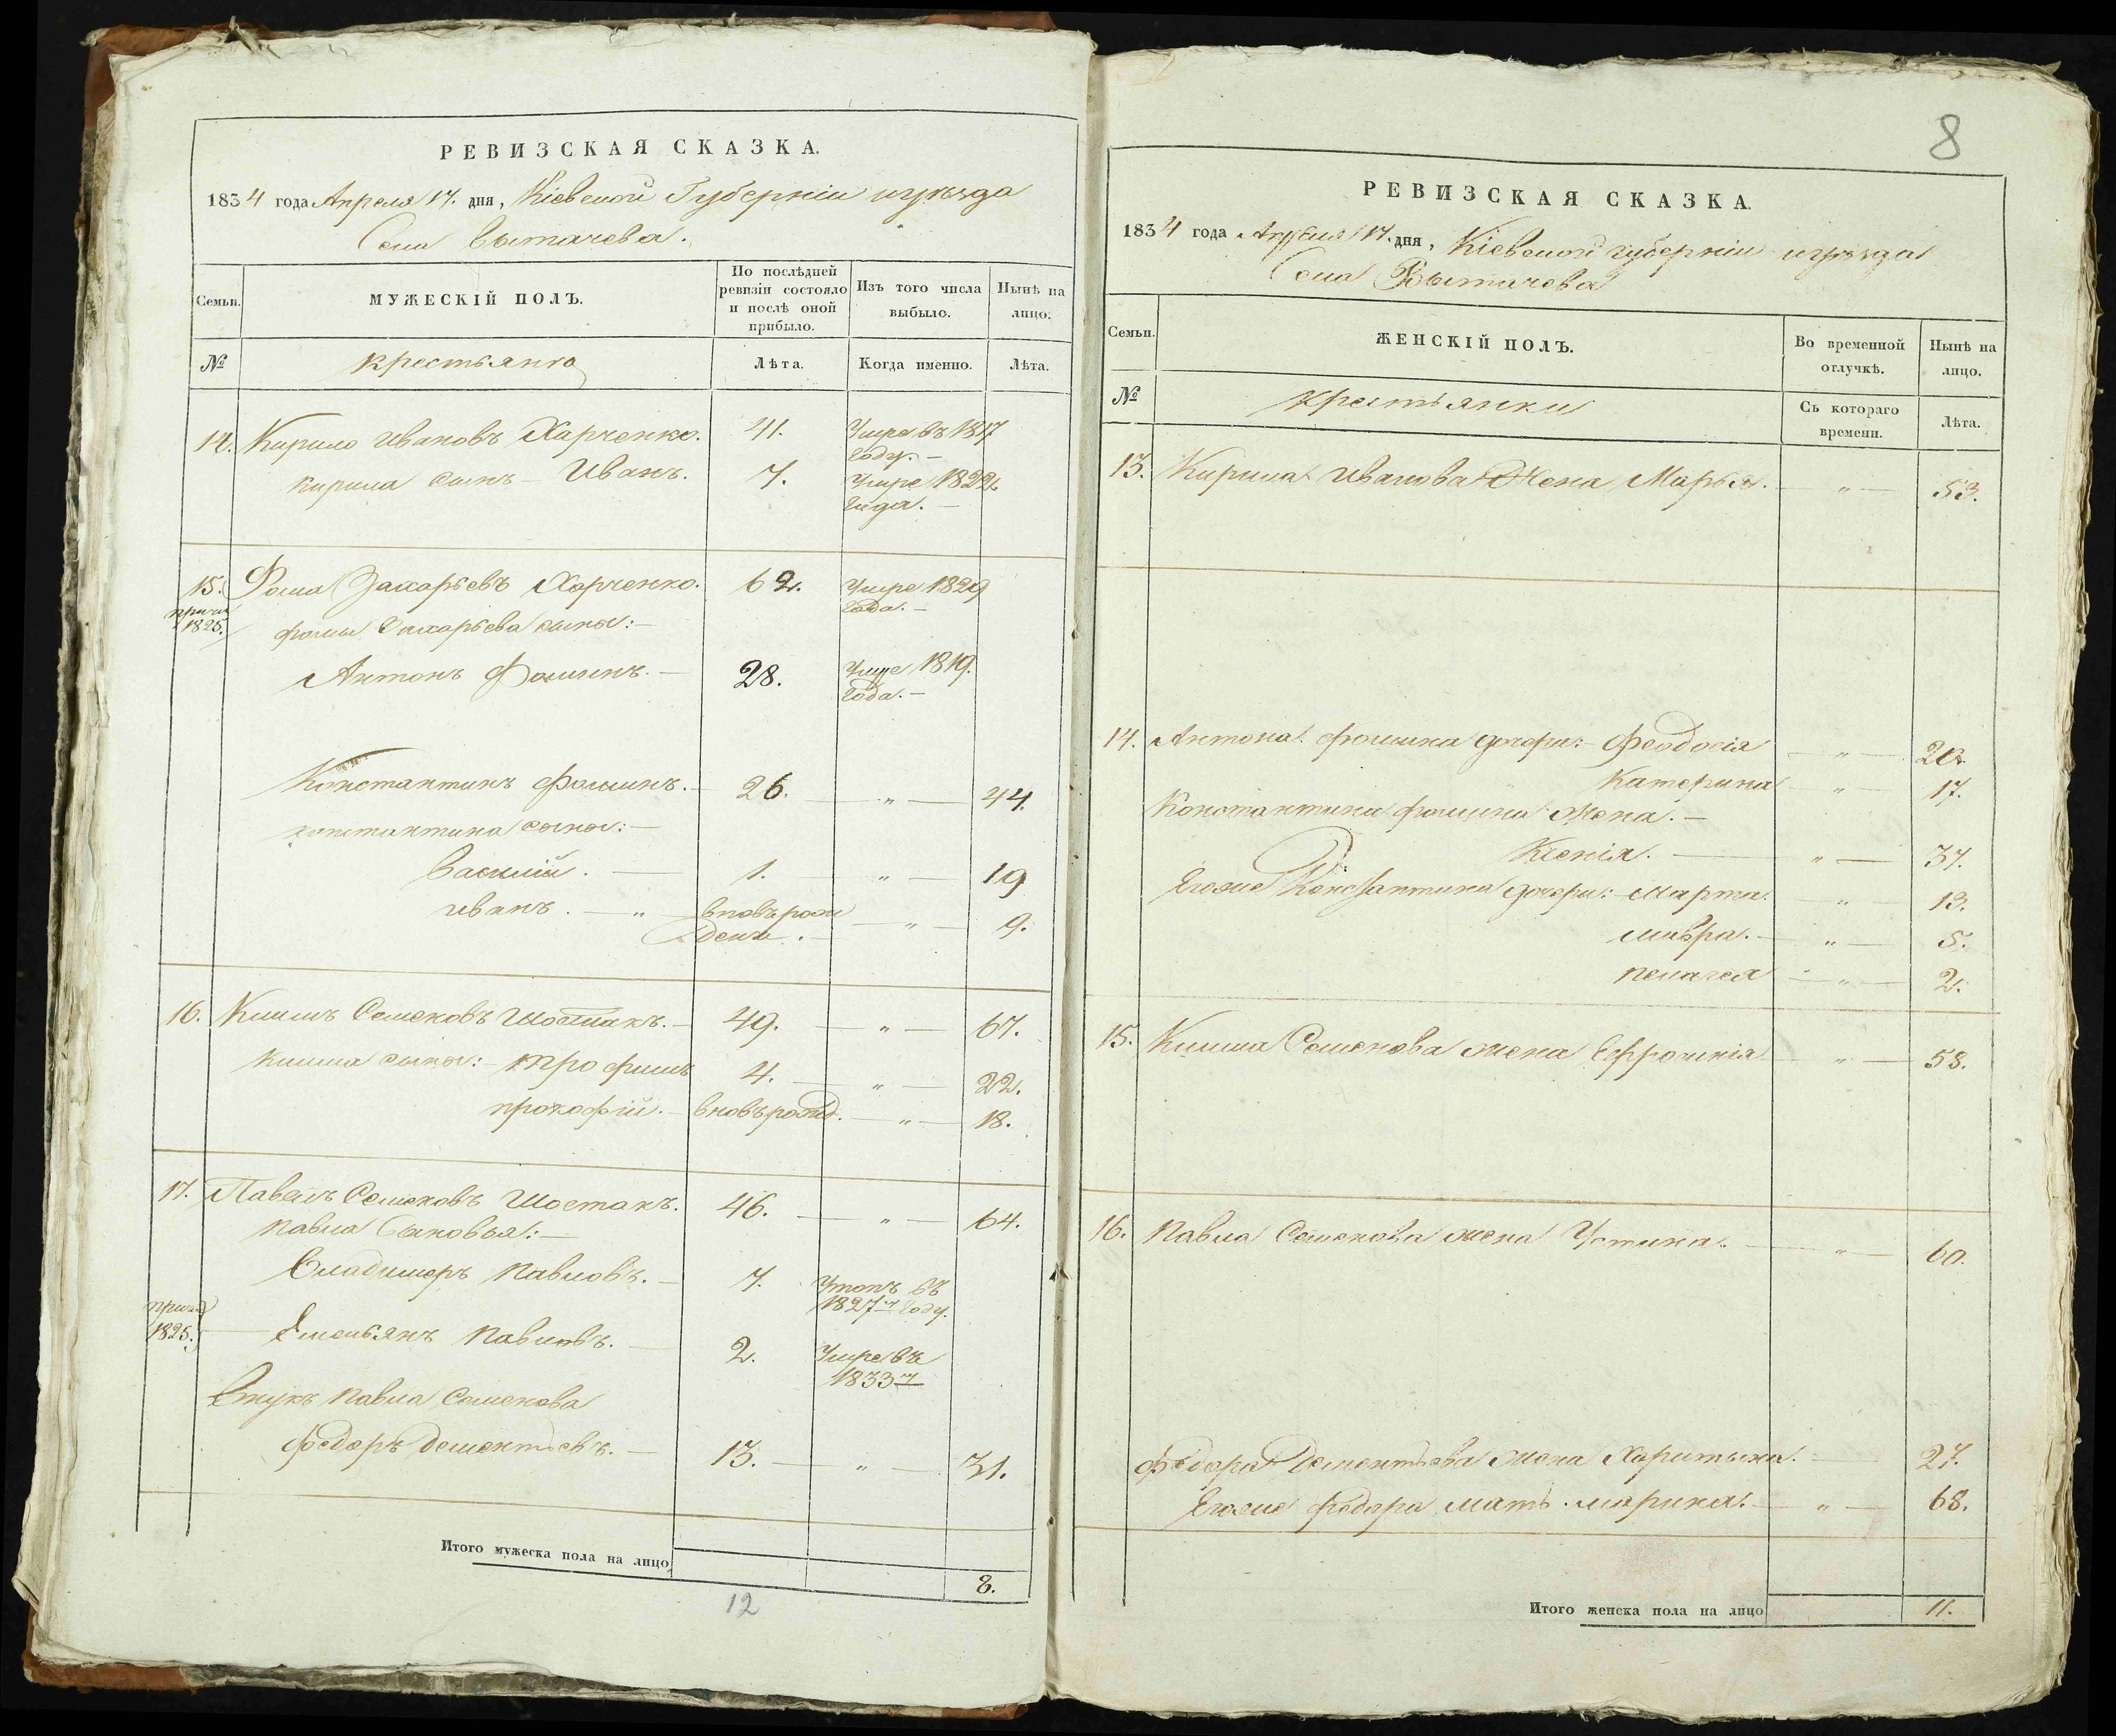 РЕВИЗСКАЯ СКАЗКА.
1834 года Апреля 17. дня, Кіевской Губерніи и уѣзда
Села Вытачева.
Семьи. МУЖЕСКІЙ ПОЛЪ. По послѣдней ревизіи состояло и послѣ оной прибыло. Изъ того числа выбыло. Нынѣ на лицо.
№ крестьяне Лѣта. Когда именно. Лѣта.
14. Кирило Ивановъ Харченко. 41. Умре въ 1817
году. —
Кирила сынъ — Иванъ. 7. Умре 1822
года. —
15. Фома Захарьевъ Харченко. 62. Умре 1829
1825. года. —
Фомы Захарьева сыны: —
Антонъ Фоминъ. — 28. Умре 1819.
года. —
Константинъ Фоминъ. — 26. — „ — 44.
Константина сыны: —
Василій. — 1. — „ — 19
Иванъ. — „ — вновь рож
денъ. — — „ — 9.
16. Климъ Семеновъ Шостакъ. — 49. — „ — 67.
Клима сыны: — Трофимъ 4. — „ — 22.
Прокофій. — вновь рожд. — „ — 18.
17. Павелъ Семеновъ Шостакъ. 46. — „ — 64.
Павла Сыновья: —
Владимеръ Павловъ. — 7. Утопъ въ
1827 году.
1825. Емельянъ Павловъ. — 2. Умре въ
1833
Внукъ Павла Семенова
Федоръ Дементьевъ. — 13. — „ — 31.
Итого мужеска пола на лицо 8.
12
8
РЕВИЗСКАЯ СКАЗКА.
1834 года Апреля 17. дня, Кіевской губерніи и уѣзда
Села Вытачева
Семьи. ЖЕНСКІЙ ПОЛЪ. Во временной отлучкѣ. Нынѣ на лицо.
№ крестьянки Съ котораго времени. Лѣта.
13. Кирила Иванова Жена Марья. — „ — 53.
14. Антона Фомина дочери: — Феодосія — „ — 20.
Катерина — „ — 17.
Константина Фомина жена. —
Ксенія. — „ — 37.
Егоже Константина дочери: — Марта. — „ — 13.
Мавра. — „ — 5.
Пелагея — „ — 2.
15. Клима Семенова жена Ефросинія — „ — 58.
16. Павла Семенова жена Устина. — „ — 60.
Федора Дементьева жена Харитина. — 27.
Егоже Федора мать. Марина. — „ — 68.
Итого женска пола на лицо 11.